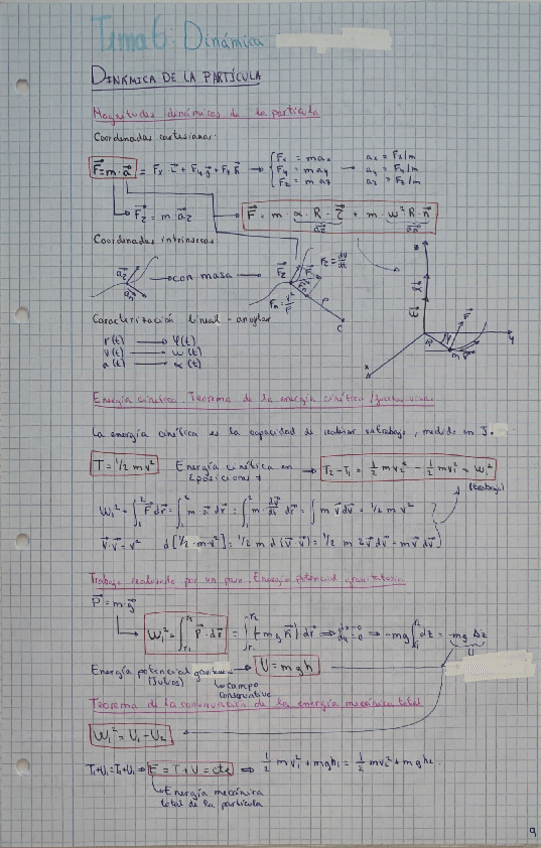 Tema 6: Dinámica
DINÁMICA DE LA PARTÍCULA
Magnitudes dinámicas de la partícula
Coordenadas cartesianas:
F⃗=m·a⃗ = Fx i⃗ + Fy j⃗ + Fz k⃗ → { Fx = m ax → ax = Fx/m
Fy = m ay ay = Fy/m
Fz = m az az = Fz/m
F⃗ = m · α · R · τ⃗ + m · ω² R · n⃗
Coordenadas intrínsecas
con masa
Caracterización lineal - angular
r(t) → φ(t)
v(t) → ω(t)
a(t) → α(t)
Energía cinética. Teorema de la energía cinética
La energía cinética es la capacidad de realizar trabajo, medida en J.
T = 1/2 mv² Energía cinética en
2 posiciones → T₂ - T₁ = 1/2 m v₂² - 1/2 m v₁² = W₁²
(trabajo)
W₁² = ∫₁² F⃗ dr⃗ = ∫₁² m · a⃗ dr⃗ = ∫₁² m · dv⃗/dt dr⃗ = ∫ m v⃗ dv⃗ = 1/2 m v²
v⃗·v⃗ = v² d[1/2·m·v²] = 1/2 m d(v⃗·v⃗) = 1/2 m 2v⃗ dv⃗ = m v⃗ dv⃗
Trabajo realizado por un peso. Energía potencial gravitatoria
P⃗ = m·g⃗
W₁² = ∫ P⃗ · dr⃗ = ∫ (-mg k⃗) dr⃗ ⇒ dx=0 dy=0 ⇒ -mg ∫ dz = -mg Δz
U
Energía potencial → U = m g h
(Julios) campo
conservativo
Teorema de la conservación de la energía mecánica total
W₁² = U₁ - U₂
E = T + U = cte ⇒ 1/2 m v₁² + m g h₁ = 1/2 m v₂² + m g h₂
Energía mecánica
total de la partícula
9